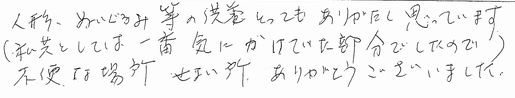 人形、ぬいぐるみ等の供養とってもありがたく思っています
(私共としては一番気にかけていた部分でしたので)
不便な場所せまい所、ありがとうございました。